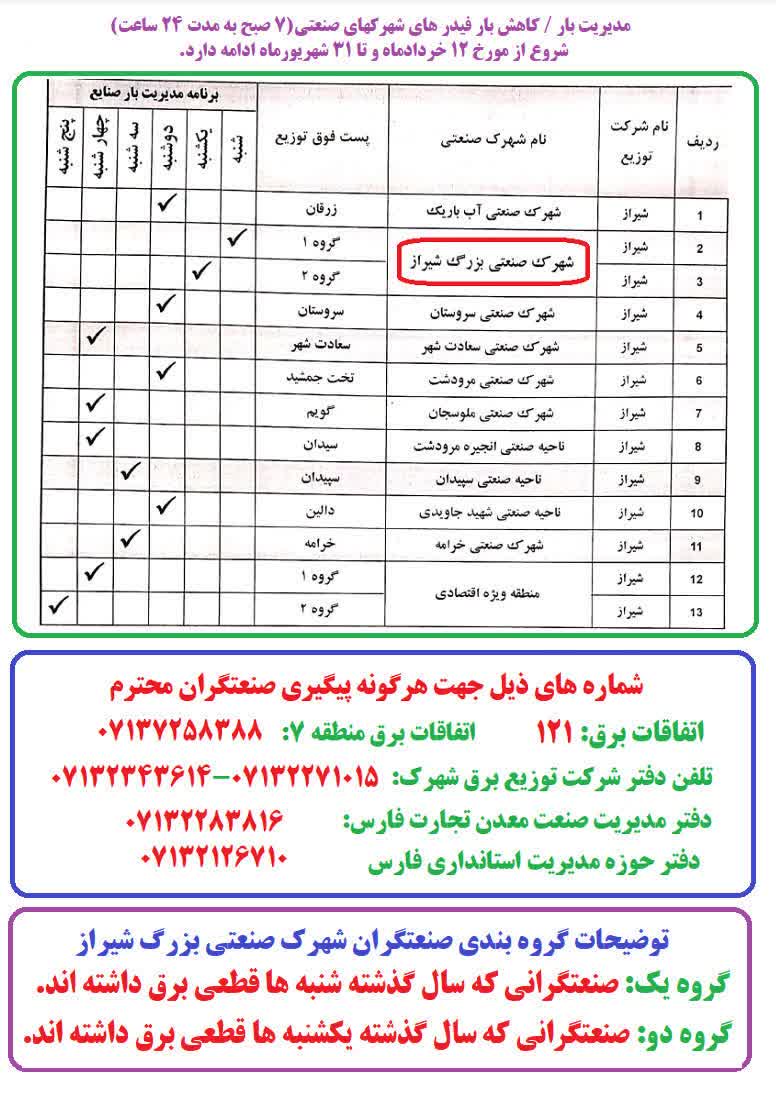 مدیریت بار / کاهش بار فیدر های شهرکهای صنعتی(۷ صبح به مدت ۲۴ ساعت)
شروع از مورخ ۱۲ خردادماه و تا ۳۱ شهریورماه ادامه دارد.
ردیف نام شرکت توزیع نام شهرک صنعتی پست فوق توزیع برنامه مدیریت بار صنایع
شنبه یکشنبه دوشنبه سه شنبه چهار شنبه پنج شنبه
1 شیراز شهرک صنعتی آب باریک زرقان ✓
2 شیراز شهرک صنعتی بزرگ شیراز گروه ۱ ✓
3 شیراز گروه ۲ ✓
4 شیراز شهرک صنعتی سروستان سروستان ✓
5 شیراز شهرک صنعتی سعادت شهر سعادت شهر ✓
6 شیراز شهرک صنعتی مرودشت تخت جمشید ✓
7 شیراز شهرک صنعتی ملوسجان گویم ✓
8 شیراز ناحیه صنعتی انجیره مرودشت سیدان ✓
9 شیراز ناحیه صنعتی سپیدان سپیدان ✓
10 شیراز ناحیه صنعتی شهید جاویدی دالین ✓
11 شیراز شهرک صنعتی خرامه خرامه ✓
12 شیراز منطقه ویژه اقتصادی گروه ۱ ✓
13 شیراز گروه ۲ ✓
شماره های ذیل جهت هرگونه پیگیری صنعتگران محترم
اتفاقات برق: ۱۲۱ اتفاقات برق منطقه ۷: ۰۷۱۳۷۲۵۸۳۸۸
تلفن دفتر شرکت توزیع برق شهرک: ۰۷۱۳۲۲۷۱۰۱۵-۰۷۱۳۲۳۴۳۶۱۴
دفتر مدیریت صنعت معدن تجارت فارس: ۰۷۱۳۲۲۸۳۸۱۶
دفتر حوزه مدیریت استانداری فارس ۰۷۱۳۲۱۲۶۷۱۰
توضیحات گروه بندی صنعتگران شهرک صنعتی بزرگ شیراز
گروه یک: صنعتگرانی که سال گذشته شنبه ها قطعی برق داشته اند.
گروه دو: صنعتگرانی که سال گذشته یکشنبه ها قطعی برق داشته اند.